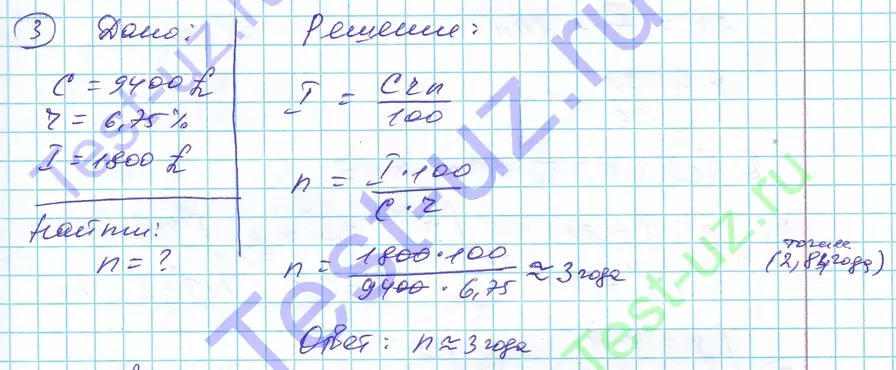 3 Дано:
C = 9400 £
r = 6,75%
I = 1800 £
Найти:
n = ?
Решение:
I = Crn / 100
n = I · 100 / C · r
n = 1800 · 100 / 9400 · 6,75 ≈ 3 года
(точнее 2,84 года)
Ответ: n ≈ 3 года
Test-uz.ru
Test-uz.ru
Test-uz.ru